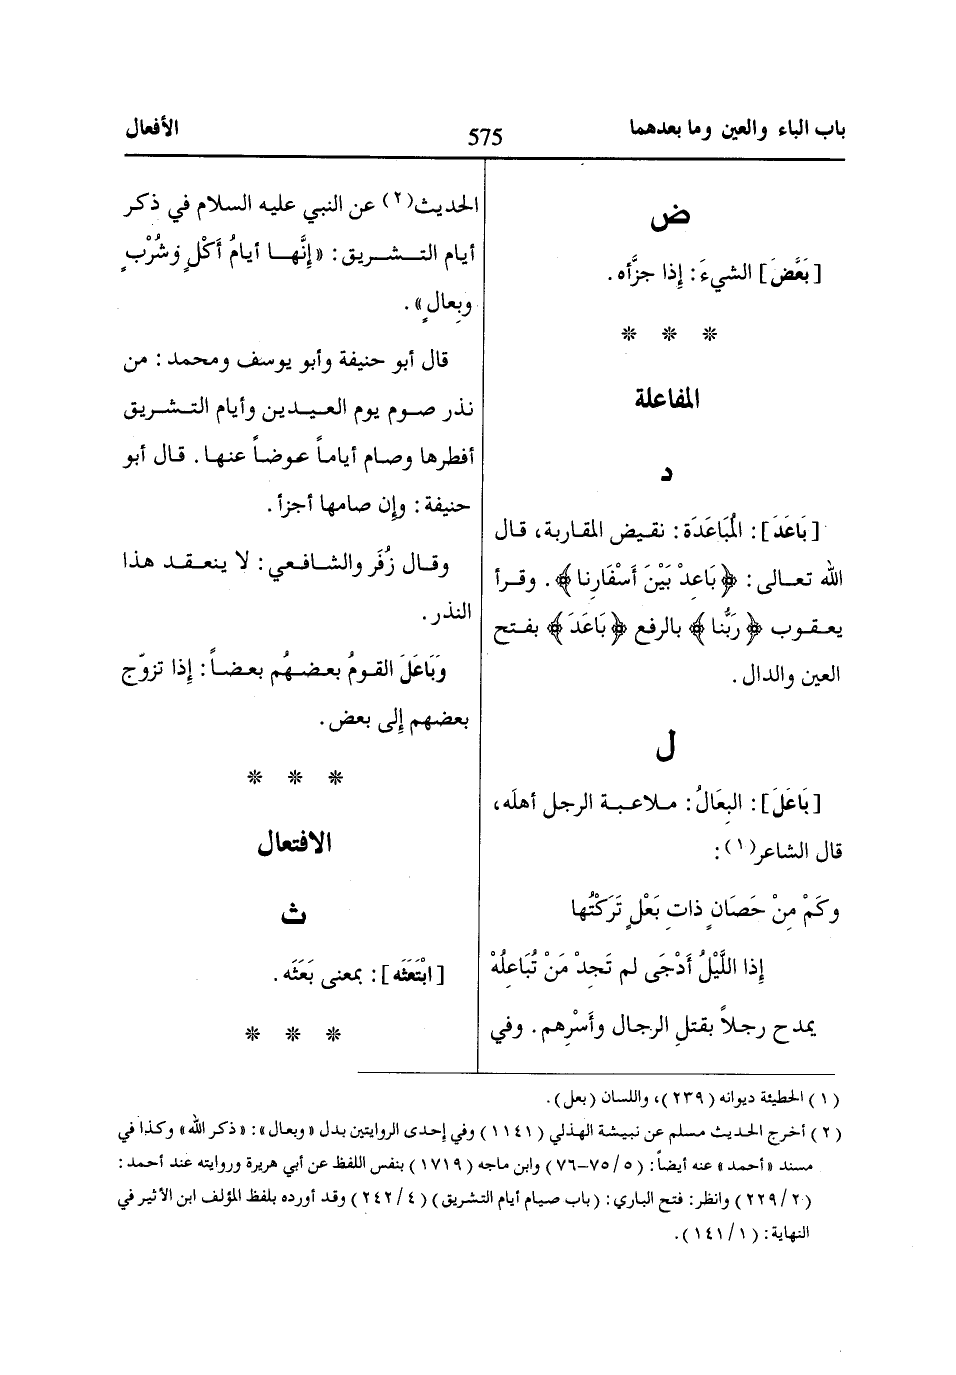 باب الباء والعين وما بعدهما
575
الأفعال
ض
[بَعَّضَ] الشيءَ: إِذا جزَّأه.
* * *
المفاعلة
د
[بَاعَدَ]: المُبَاعَدَة: نقيض المقاربة، قال
الله تعالى: ﴿بَاعِدْ بَيْنَ أَسْفَارِنا﴾. وقرأ
يعقوب ﴿رَبُّنا﴾ بالرفع ﴿بَاعَدَ﴾ بفتح
العين والدال.
ل
[بَاعَلَ]: البِعَالُ: ملاعبة الرجل أهلَه،
قال الشاعر(١):
وكَمْ مِنْ حَصَانٍ ذاتِ بَعْلٍ تَرَكْتُها
إِذا اللَّيْلُ أَدْجَى لم تَجِدْ مَنْ تُبَاعِلُهْ
يمدح رجلاً بقتلِ الرجال وأَسْرِهم. وفي
الحديث(٢) عن النبي عليه السلام في ذكر
أيام التشريق: «إِنَّها أيامُ أَكْلٍ وَشُرْبٍ
وبِعالٍ».
قال أبو حنيفة وأبو يوسف ومحمد: من
نذر صوم يوم العيدين وأيام التشريق
أفطرها وصام أياماً عوضاً عنها. قال أبو
حنيفة: وإِن صامها أجزأ.
وقال زُفَر والشافعي: لا ينعقد هذا
النذر.
وَبَاعَلَ القومُ بعضهُم بعضاً: إِذا تزوّج
بعضهم إِلى بعض.
* * *
الافتعال
ث
[ابْتَعَثَه]: بمعنى بَعَثَه.
* * *
(١) الحطيئة ديوانه (٢٣٩)، واللسان (بعل).
(٢) أخرج الحديث مسلم عن نبيشة الهذلي (١١٤١) وفي إحدى الروايتين بدل «وبعال»: «ذكر الله» وكذا في
مسند «أحمد» عنه أيضاً: (٥/٧٥-٧٦) وابن ماجه (١٧١٩) بنفس اللفظ عن أبي هريرة وروايته عند أحمد:
(٢/٢٢٩) وانظر: فتح الباري: (باب صيام أيام التشريق) (٤/٢٤٢) وقد أورده بلفظ المؤلف ابن الأثير في
النهاية: (١/١٤١).